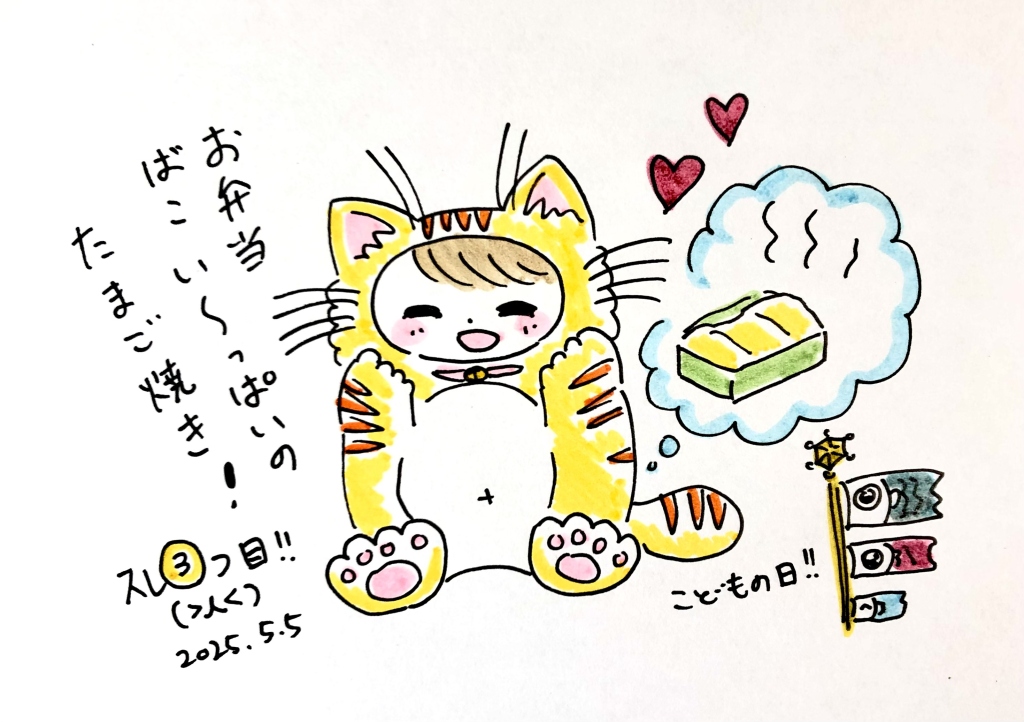 お弁当
ばこい〜っぱいの
たまご焼き!
スレ③つ目!!
2025.5.5
こどもの日!!